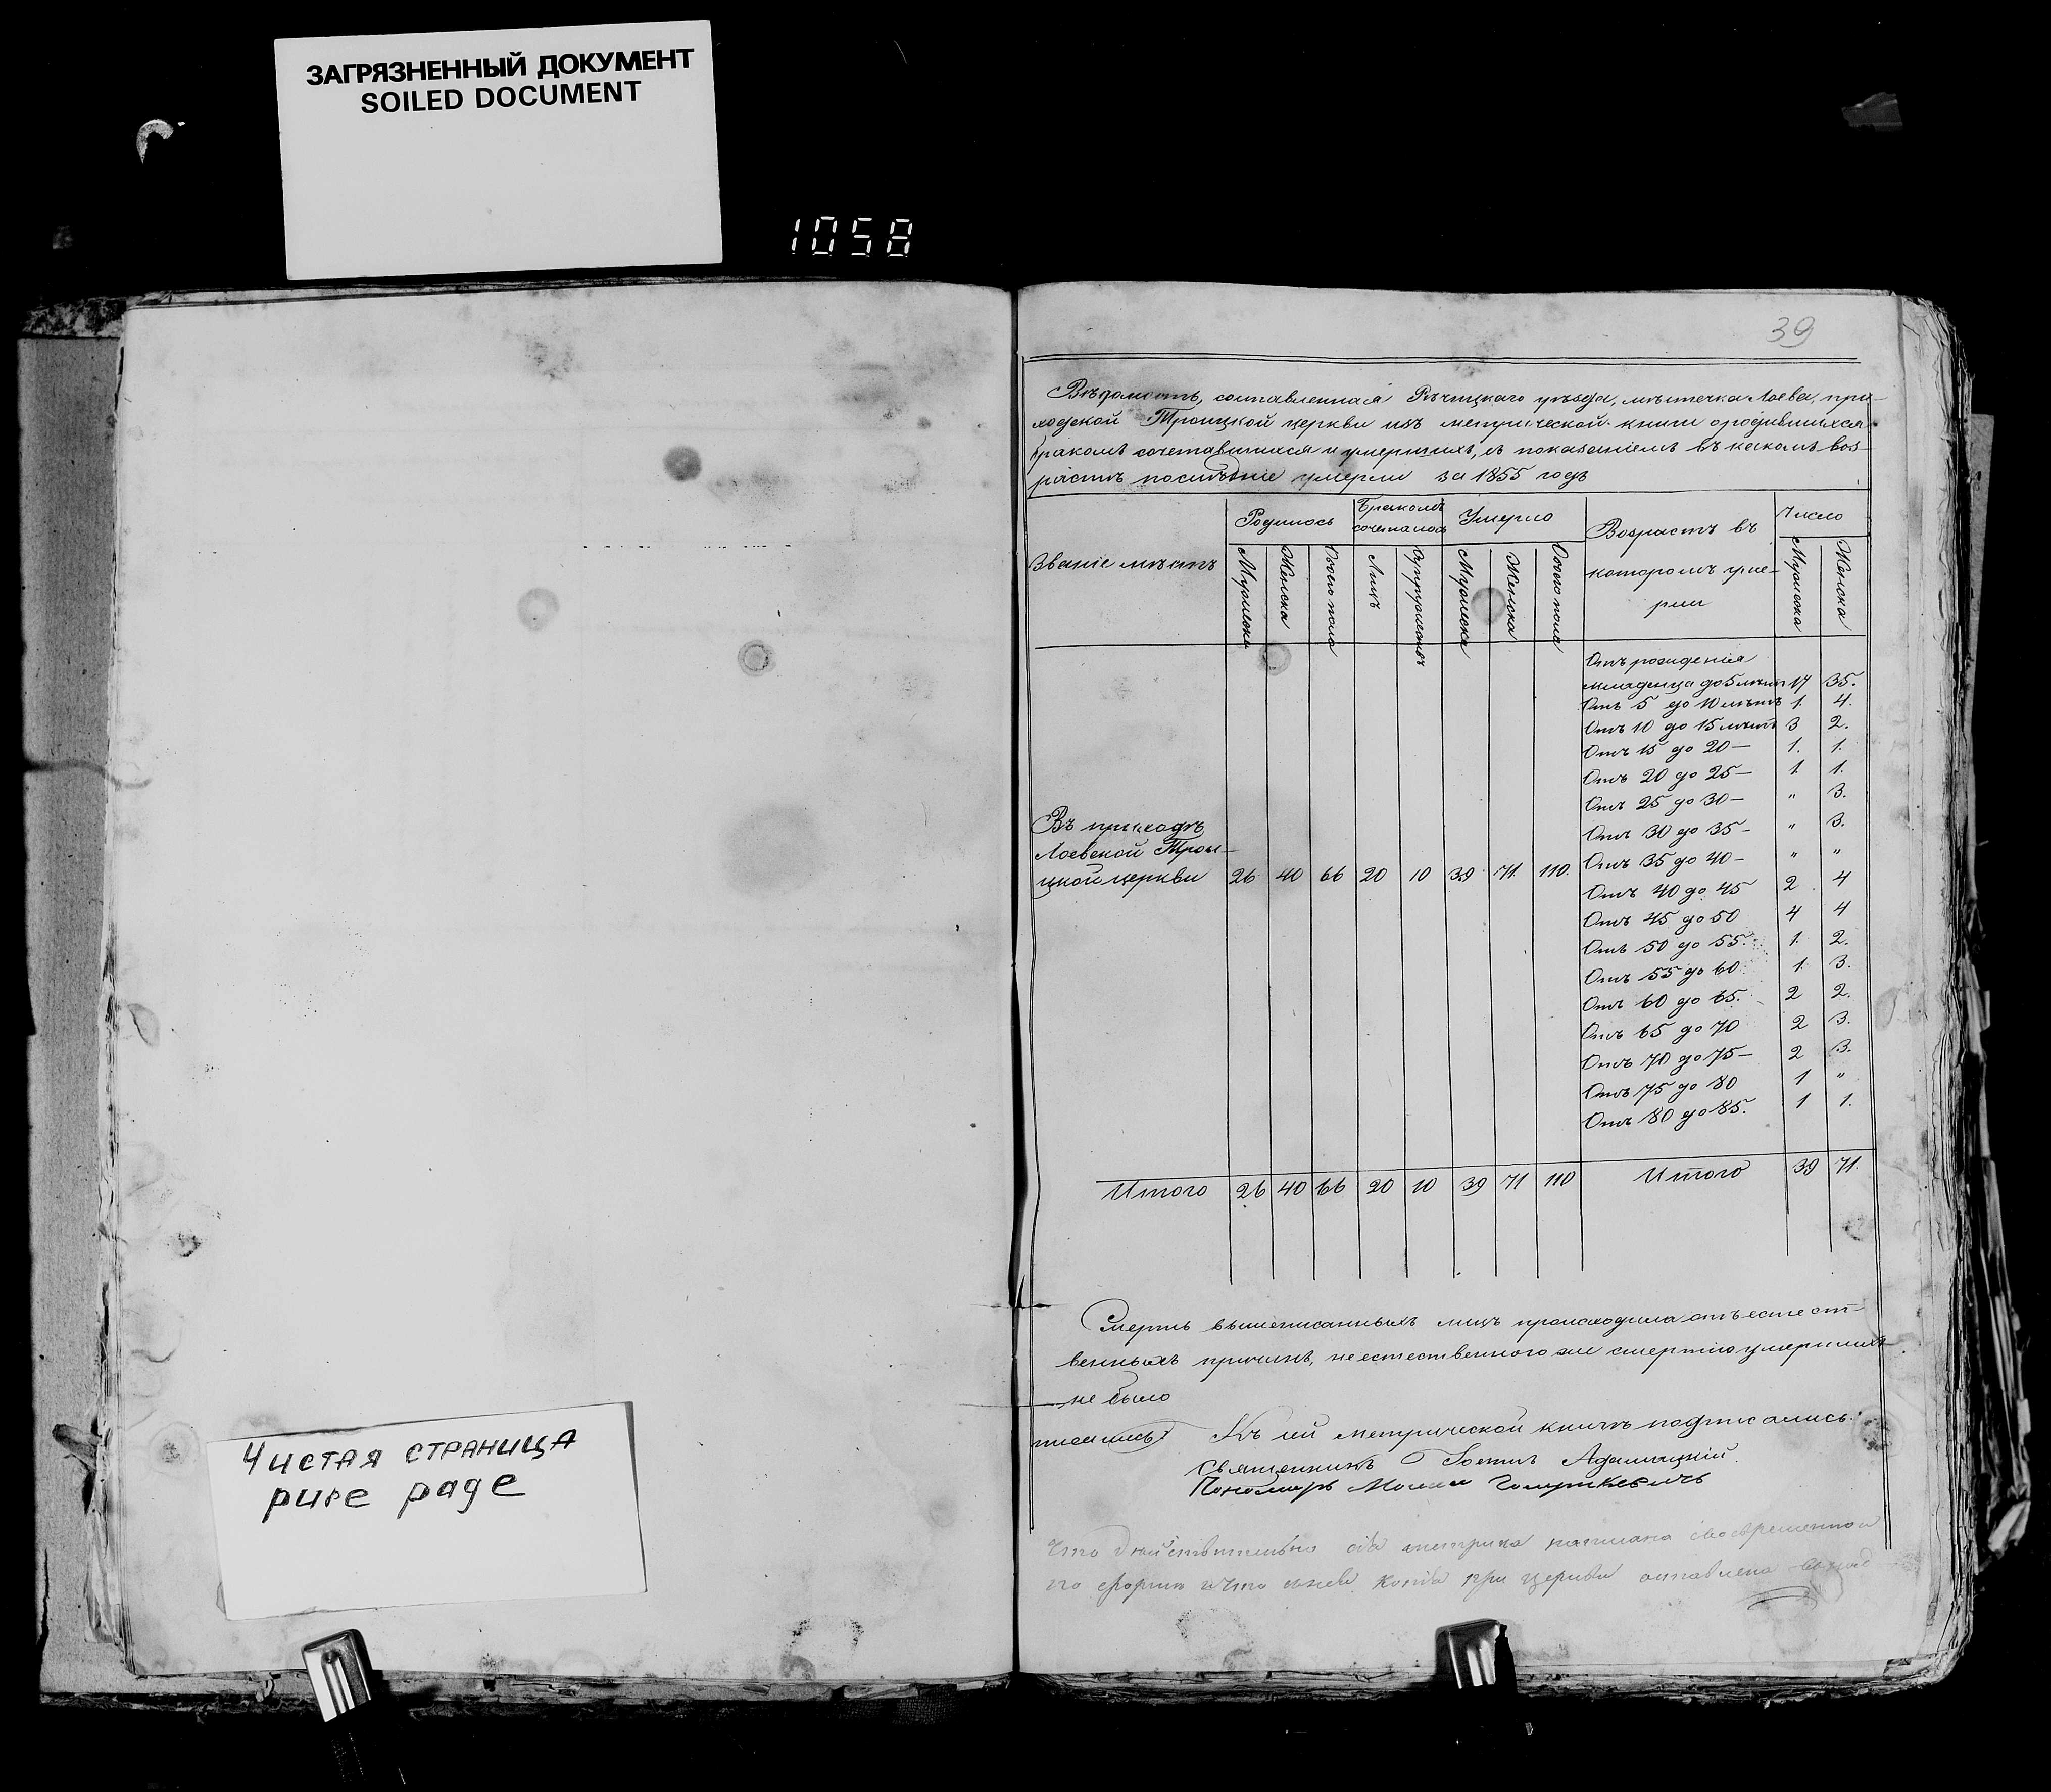 ЗАГРЯЗНЕННЫЙ ДОКУМЕНТ
SOILED DOCUMENT
1058
39
Вѣдомость, составленная Рѣчицкаго уѣзда, мѣстечка Лоева, при-
ходской Троицкой церкви изъ метрической книги о родившихся
бракомъ сочетавшихся и умершихъ, съ показаніемъ въ какомъ воз-
растѣ послѣдніе умерли за 1855 годъ
Званіе мѣстъ
Родилось
Бракомъ сочеталось
Умерло
Возрастъ въ
котором уме-
рли
Число
Мужеска Женска Обоего пола Лицъ Супружествъ Мужеска Женска Обоего пола Мужеска Женска
Отъ рожденія
младенца до 5 лѣтъ 17 35.
Отъ 5 до 10 лѣтъ 1. 4.
Отъ 10 до 15 лѣтъ 3 2.
Отъ 15 до 20 — 1. 1.
Отъ 20 до 25 — 1 1.
Отъ 25 до 30 — " 3.
Отъ 30 до 35 - " 3.
Отъ 35 до 40 - " "
Отъ 40 до 45 2 4
Отъ 45 до 50 4 4
Отъ 50 до 55. 1. 2.
Отъ 55 до 60 1. 3.
Отъ 60 до 65. 2 2.
Отъ 65 до 70 2 3.
Отъ 70 до 75 — 2 3.
Отъ 75 до 80 1 "
Отъ 80 до 85. 1 1.
Въ приходѣ
Лоевской Трои-
цкой церкви 26 40 66 20 10 39 71. 110.
Итого 26 40 66 20 10 39 71 110 Итого 39 71.
Смерть вышеписанныхъ лицъ происходила отъ естест-
венныхъ причинъ, неестественного же смертію умершихъ
не было
Къ сей метрической книгѣ подписались:
Священникъ Адамицкій.
Пономарь
Что дѣйствительно сія метрика написана своевременно и
по формѣ и что съ нея копія при церкви оставлена
Чистая страница
pure page